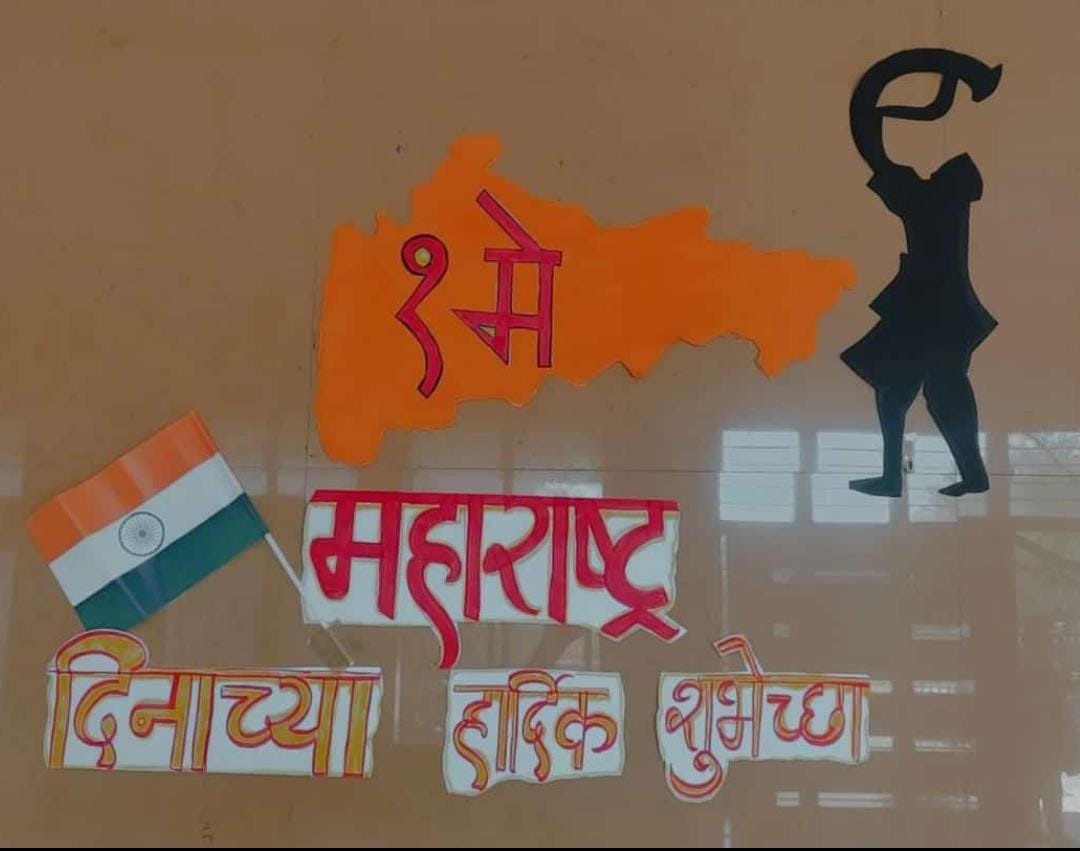 १ मे
महाराष्ट्र
दिनाच्या हार्दिक शुभेच्छा